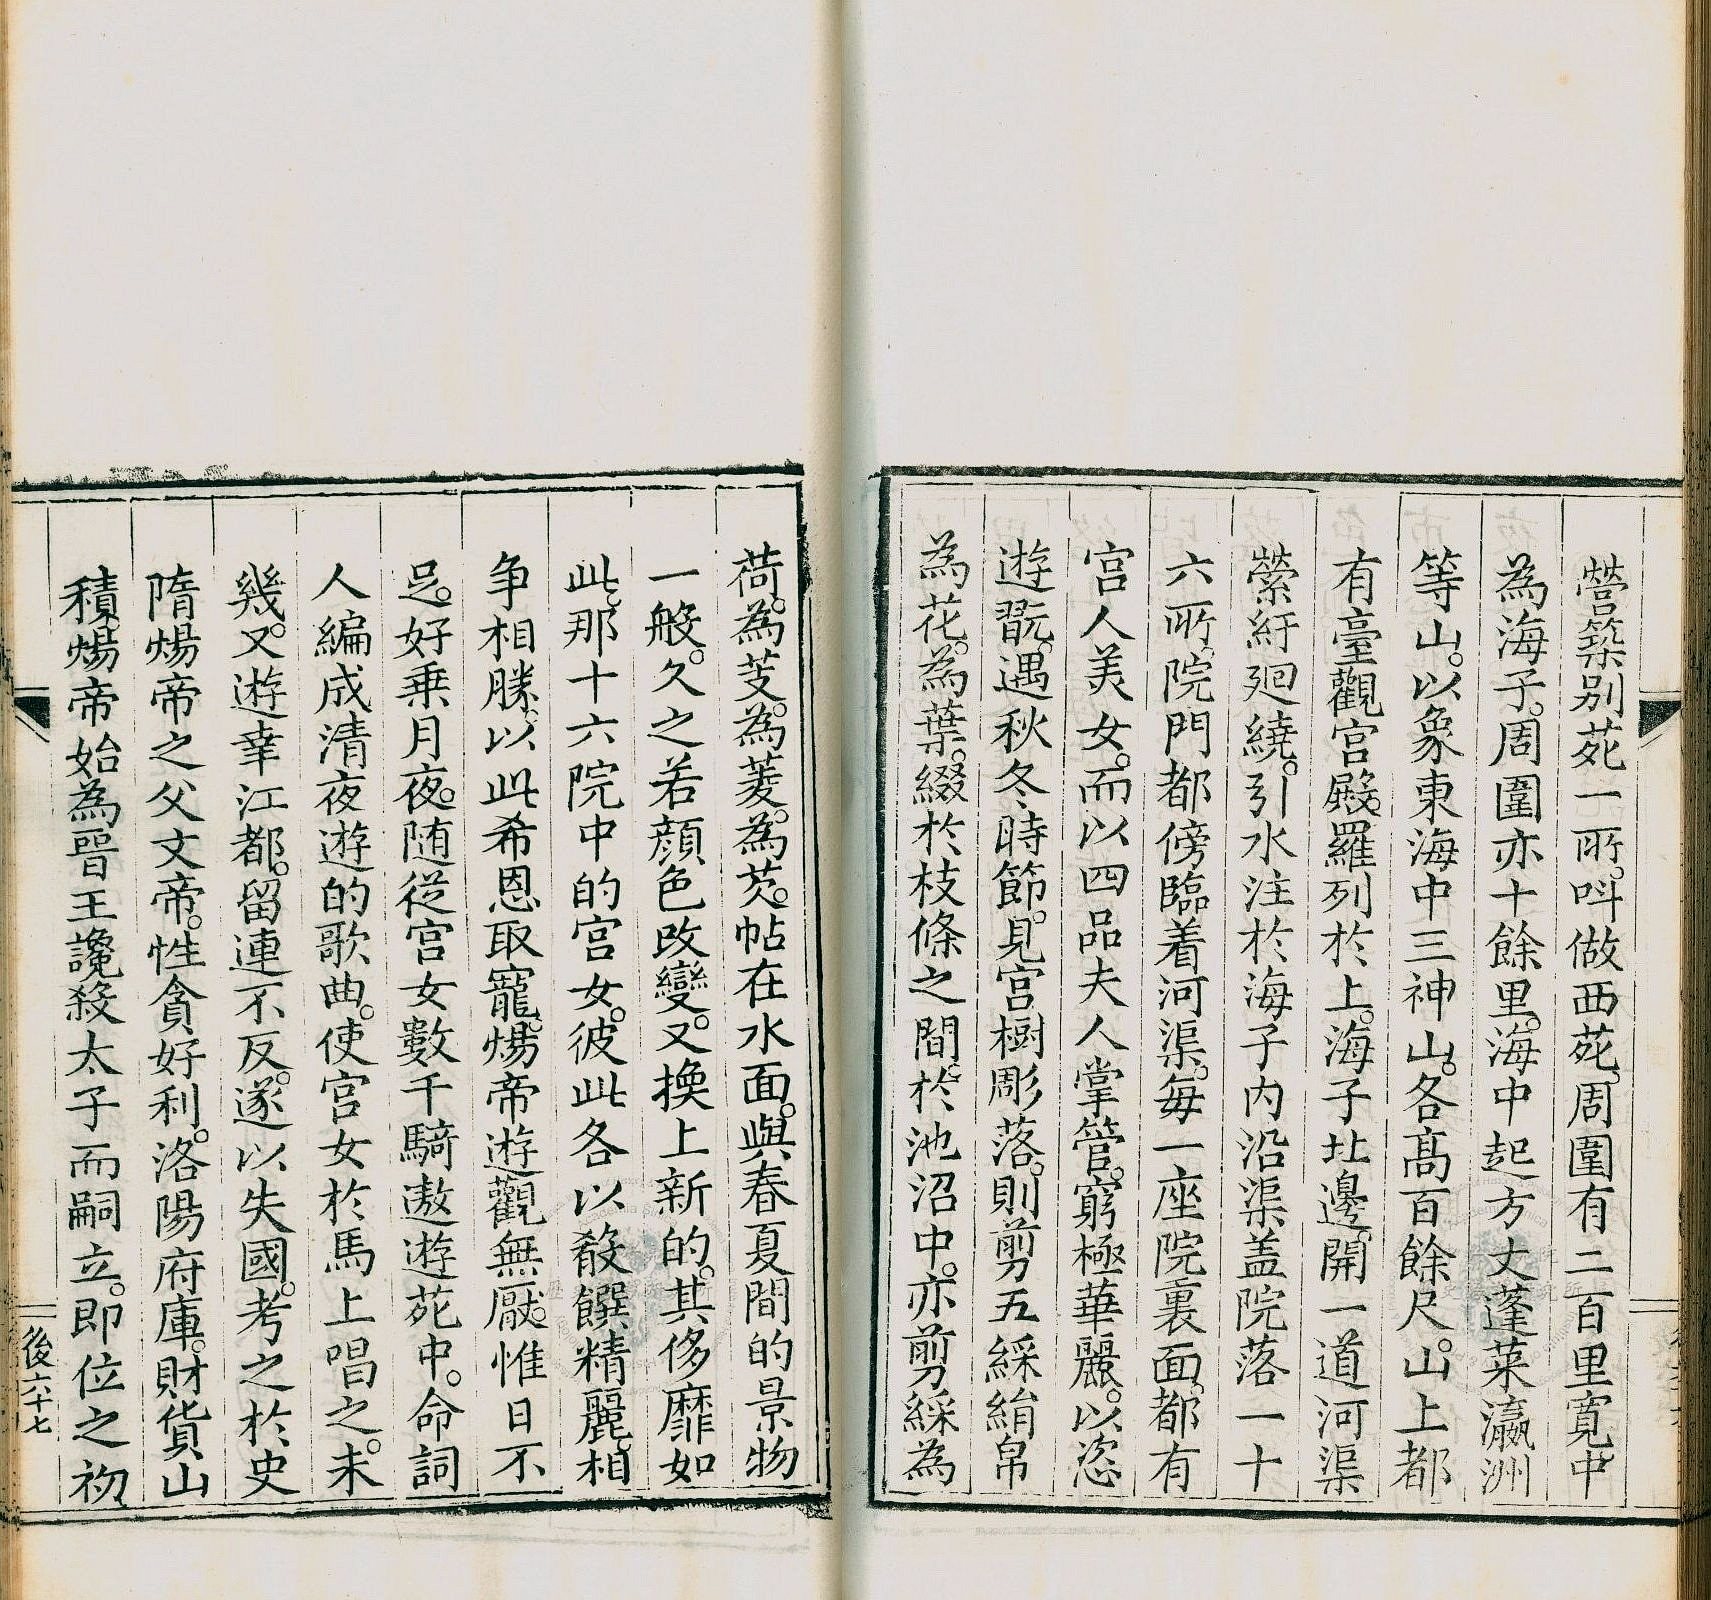 營築别苑一所。呌做西苑。周圍有二百里寬。中
為海子。周圍亦十餘里。海中起方丈蓬萊瀛洲
等山。以象東海中三神山。各高百餘尺。山上都
有臺觀宫殿。羅列於上。海子北邊。開一道河渠
縈紆廻繞。引水注於海子内沿渠盖院落一十
六所。院門都傍臨着河渠。每一座院裏面。都有
宫人美女。而以四品夫人掌管。窮極華麗。以恣
遊翫。遇秋冬時節。見宫樹彫落。則剪五綵絹帛
為花。為葉。綴於枝條之間。於池沼中。亦剪綵為
荷。為芰。為菱。為芡。帖在水面。與春夏間的景物
一般。久之若顔色改變。又換上新的。其侈靡如
此。那十六院中的宫女。彼此各以殽饌精麗。相
争相勝。以此希恩取寵。煬帝遊觀無厭。惟日不
足。好乗月夜。随從宫女數千騎遨遊苑中。命詞
人編成清夜遊的歌曲。使宫女於馬上唱之。未
幾。又遊幸江都。留連不反。遂以失國。考之於史
隋煬帝之父文帝。性貪好利。洛陽府庫。財貨山
積。煬帝始為晉王讒殺太子而嗣立。即位之初
後六十七